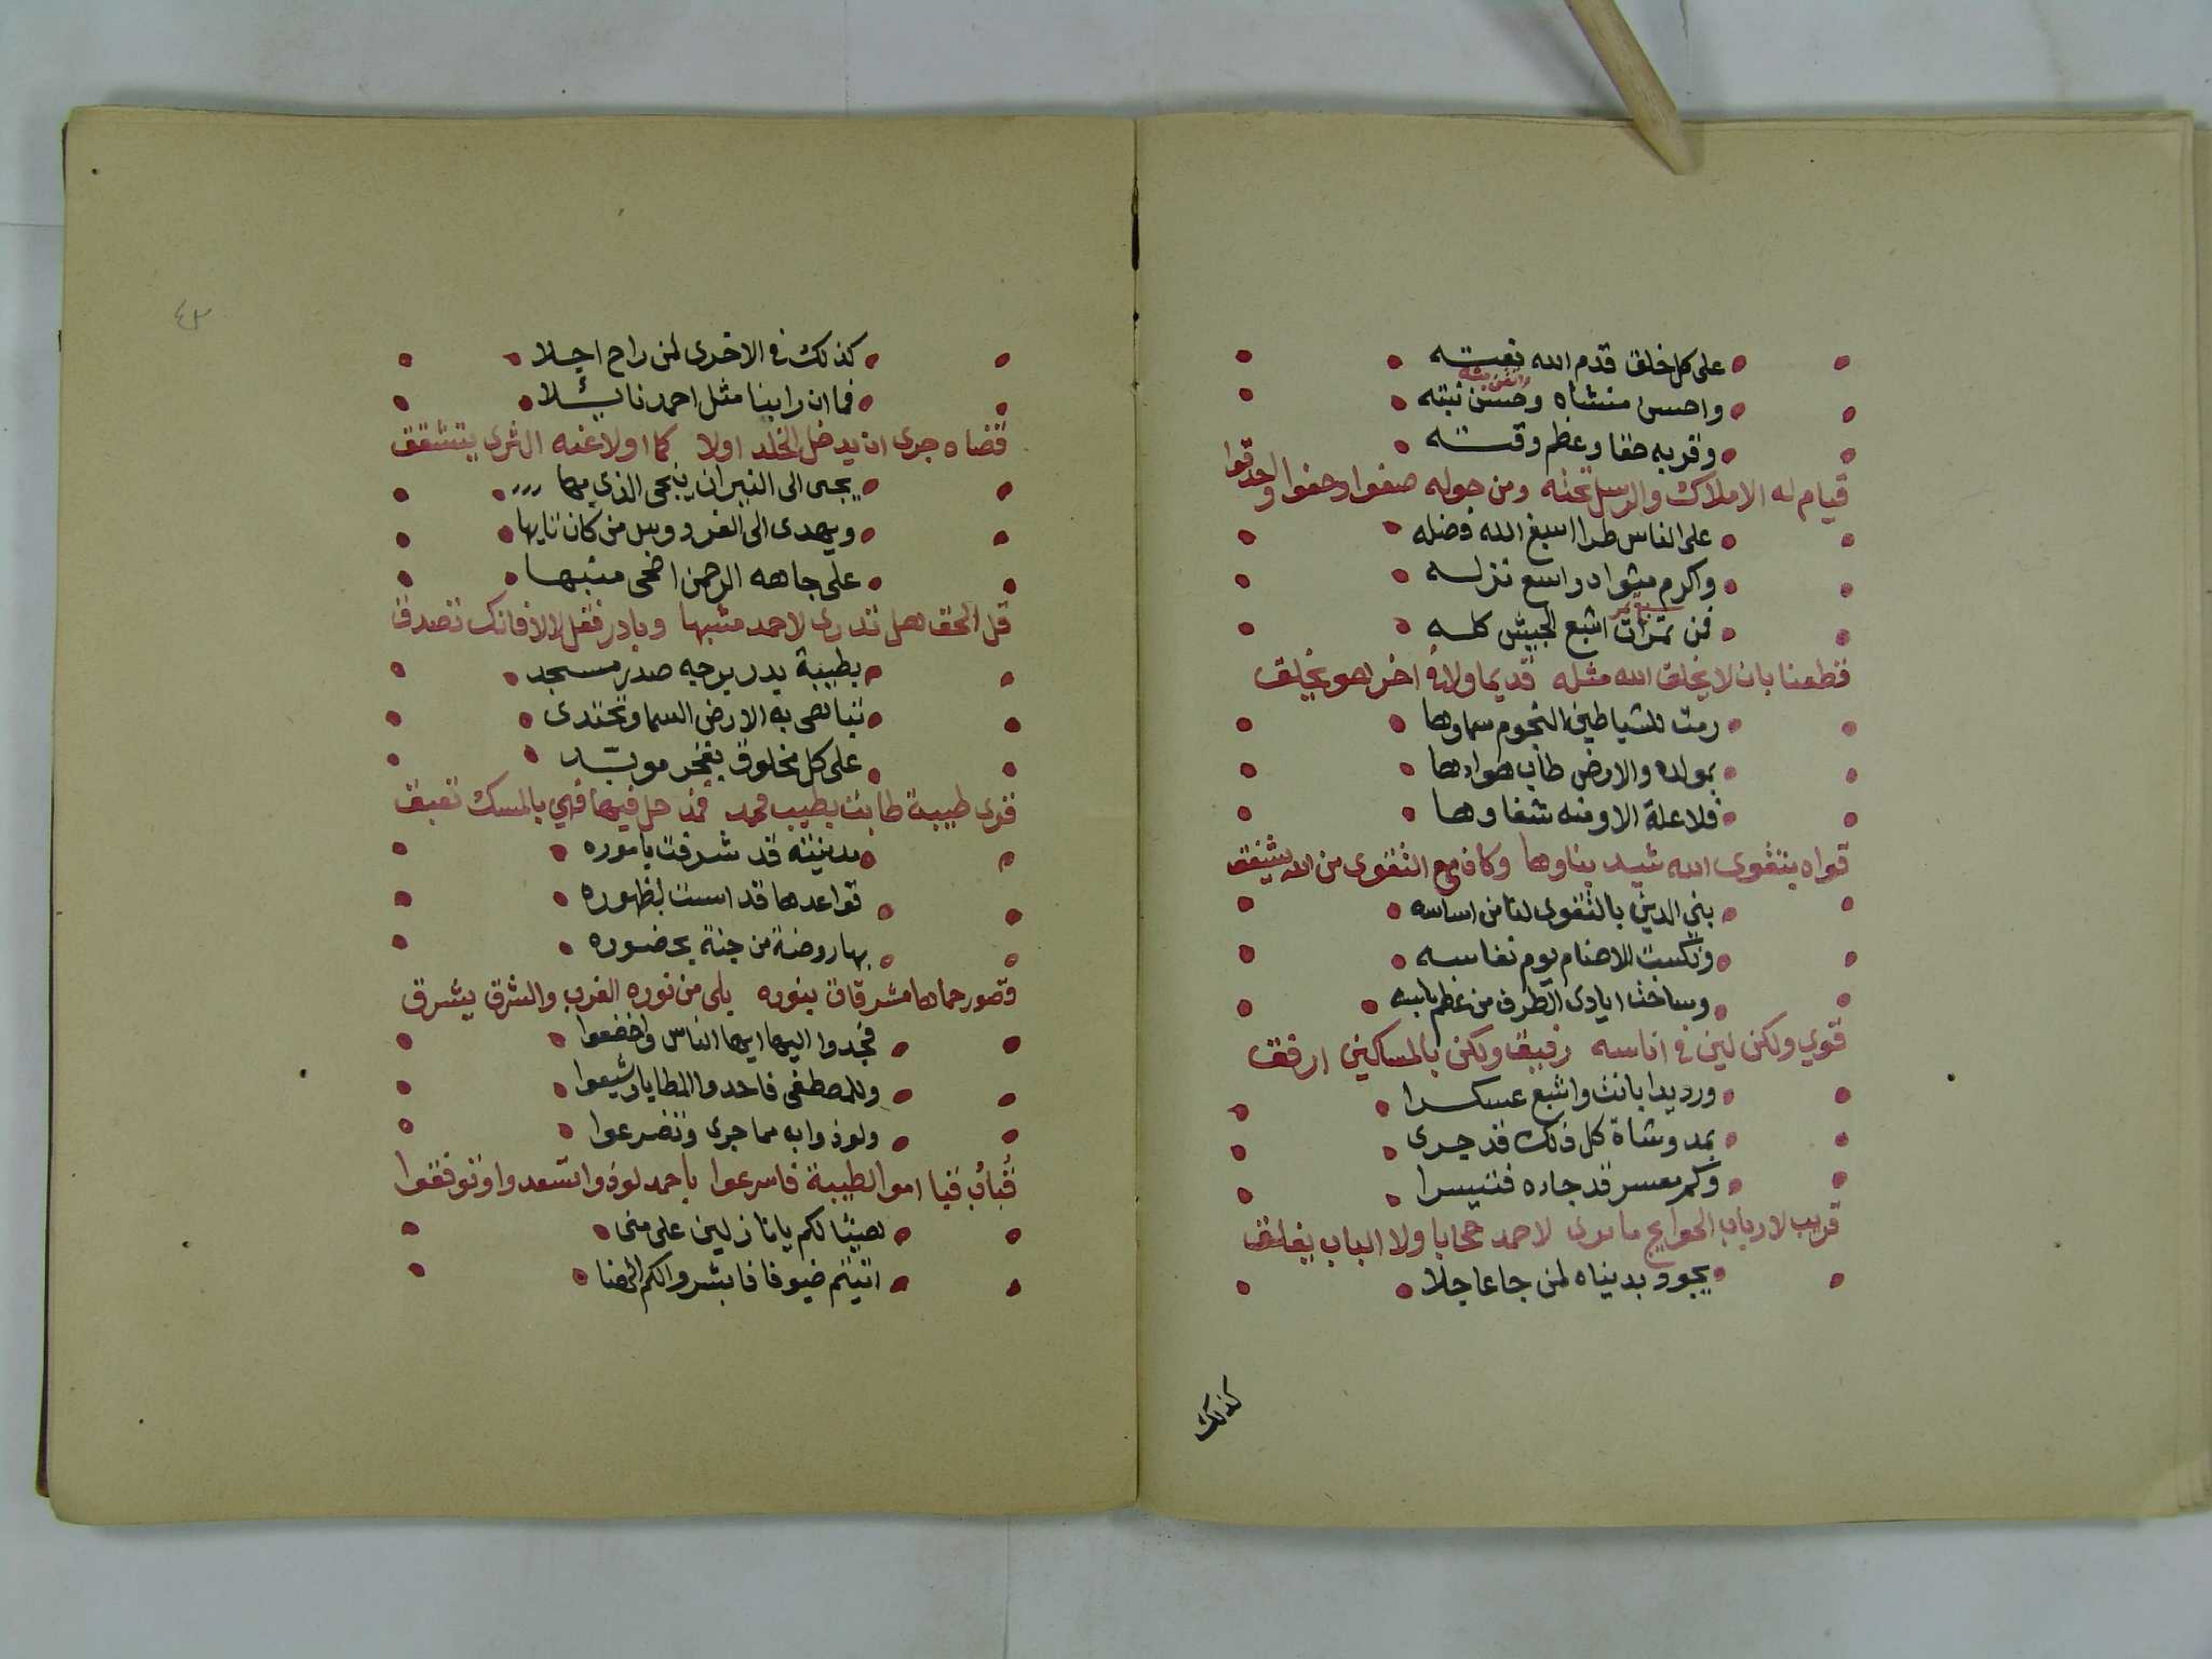 على كل خلق قدم الله نعته
واحسن منشاه وحسن نبته
وقربه حقا وعظم وقته
قيام له الاملاك والرسل تحته ومن حوله صفوا وحفوا واحدقوا
على الناس طرا اسبغ الله فضله
واكرم مثواه واسع نزله
فمن تمرات اشبع الجيش كله
قطعنا بان لا يخلق الله مثله قديما ولا في اخر هو يخلق
رمت للشياطين النجوم سماوها
بمولده والارض طاب هواوها
فلا علة الا ومنه شفاوها
قواه بتقوى الله شيد بناوها وكان مع التقوى من الله يشفق
بني الدين بالتقوى لنا من اساسه
ونكبت الاصنام يوم نفاسه
وساخت ايادى الطرف من عظم باسه
قوي ولكن لين في اناسه رفيق ولكن بالمساكين ارفق
ورديدا بانت واشبع عسكرا
بمد وشاة كل ذلك قد جرى
وكم معسر قد جاده فتيسرا
قريب لارباب الحوايج ما يرى لاحمد حجابا ولا الباب يغلق
يجود بدنياه لمن جا عاجلا
كذلك
كذلك في الاخرى لمن راح اجلا
فما ان راينا مثل احمد نائلا
قضاه جرى ان يدخل الخلد اولا كما اولا عنه الثرى يتشقق
يجى الى النيران ينجى الذي بها
ويهدى الى الفردوس من كان نايها
على جاهه الرحمن اضحى منبها
قل الحق هل تدرى لاحمد مشبها وبادر فقل لا لا فانك تصدق
بطيبة بدر يوجه صدر مسجد
نبيا بهى به الارض السما وتحتدى
على كل مخلوق بفخر مويد
قرى طيبة طابت بطيب محمد فمذ حل فيها فهي بالمسك تعبق
مدينته قد شرفت باموره
قواعدها قد اسست لظهوره
بها روضة من جنة بحضوره
قصور حماها مشرقات بنوره بلى من نوره الغرب والشرق يشرق
فجدوا اليها ايها الناس واخضعوا
وللمصطفى فاحدوا المطايا وشيعوا
ولوذوا به مما جرى وتضرعوا
قباب قبا اموا لطيبة فاسرعوا باحمد لوذوا تسعدوا وتوفقوا
هنيئا لكم يا نازلين على منى
اتيتم ضيوفا فابشروا لكم الهنا